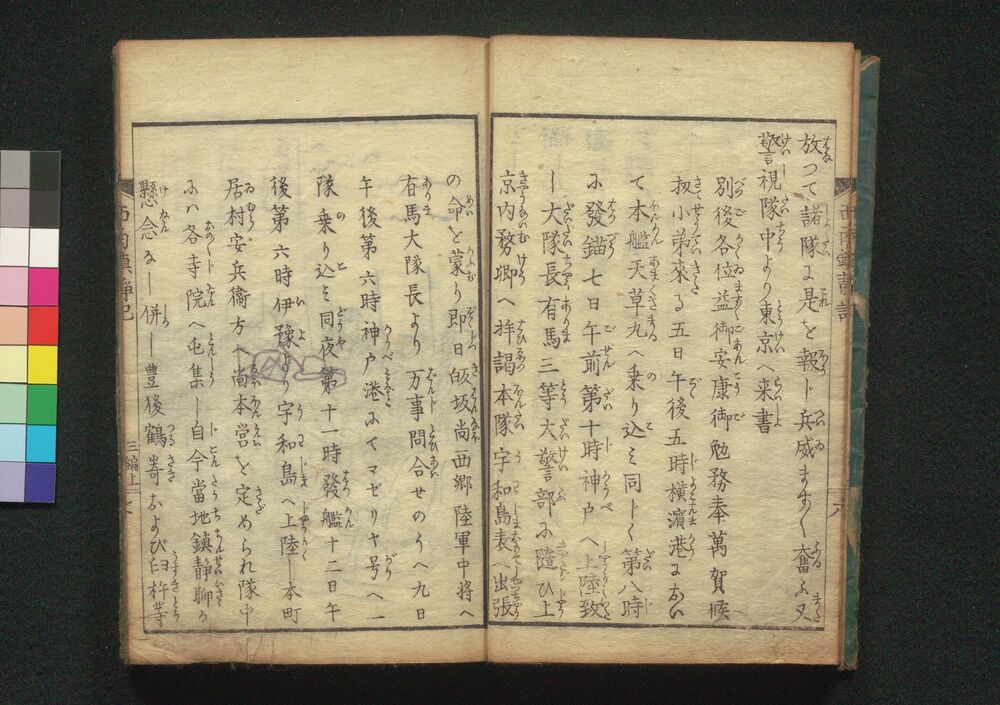 放つて諸隊に是を報ド兵威ます〳〵奮ふ又
警視隊中より東京へ来書
別後各位益御安康御勉務奉萬賀候
扨小弟来る五日午後五時横濱港におい
て本艦天草丸へ乗り込ミ同ドく第八時
ふ發錨七日午前第十時神戸へ上陸致
し大隊長有馬三等大警部ふ随ひ上
京内務卿へ拝謁本隊宇和島表へ出張
の命を蒙り即日皈坂尚西郷陸軍中将へ
有馬大隊長より万事問合せのうへ九日
午後第六時神戸港ふてマゼリヤ号へ一
隊乗り込ミ同夜第十一時發艦十二日午
後第六時伊豫なる宇和島へ上陸し本町
居村安兵衞方へ尚本営を定められ隊中
ふハ各寺院へ屯集し自今當地鎮静聊か
懸念なし併し豊後鶴嵜および臼杵等
西南鎮静記
三編上